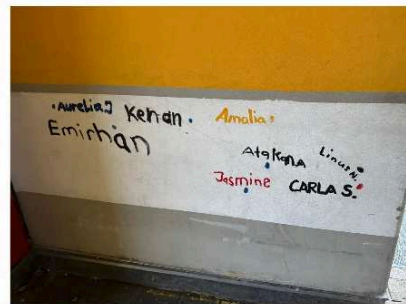 Aurelia J
Kenan
Amalia
Emirhan
Atakana
Linus N.
Jasmine
CARLA S.